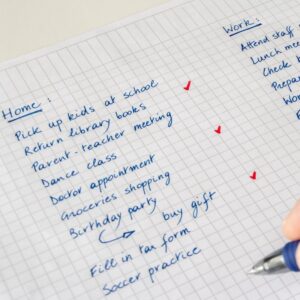 Home :
Pick up kids at school
Return library books
Parent-teacher meeting
Dance class
Doctor appointment
Groceries shopping
Birthday party
buy gift
Fill in tax form
Soccer practice
Work :
Attend staff
Lunch
Check